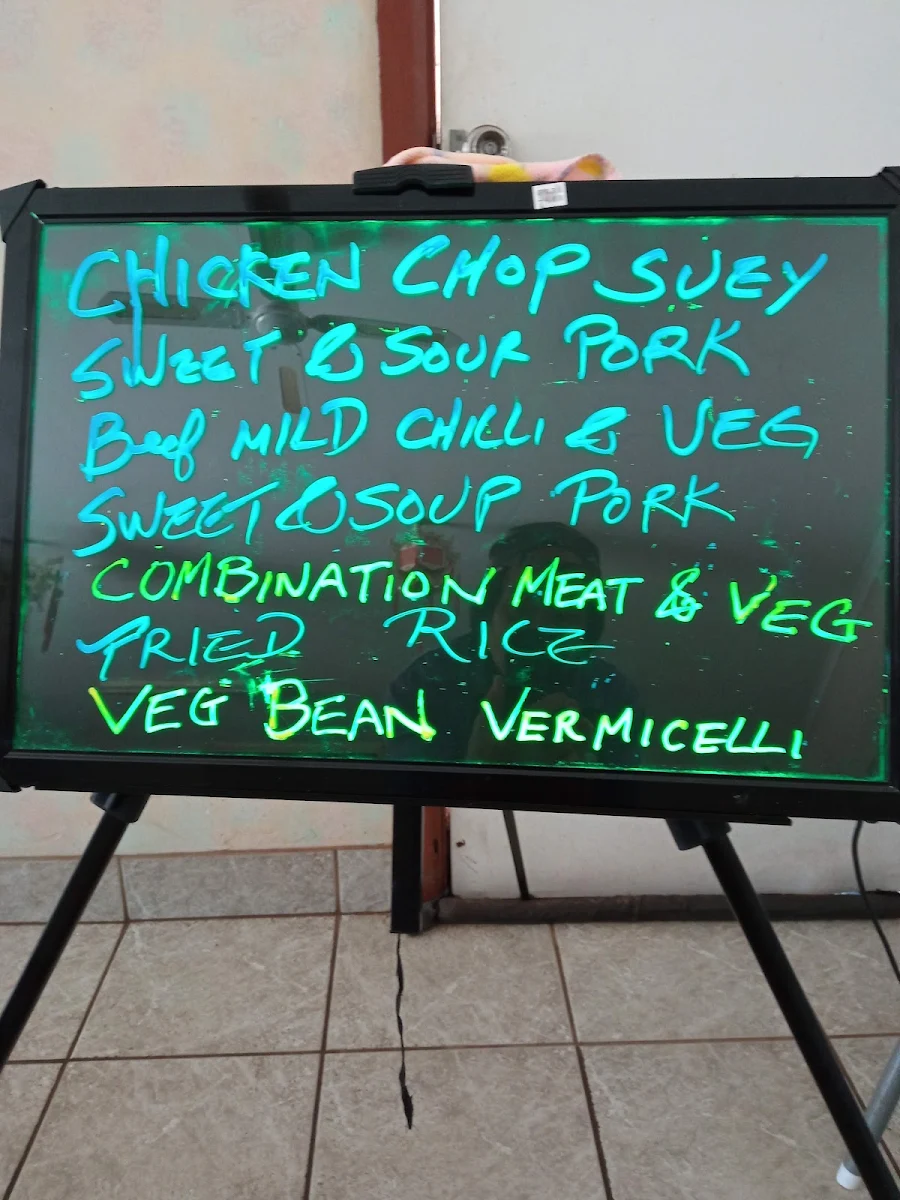 CHICKEN CHOP SUEY
SWEET & SOUR PORK
Beef MILD CHILLI & VEG
SWEET & SOUP PORK
COMBINATION MEAT & VEG
FRIED RICE
VEG BEAN VERMICELLI